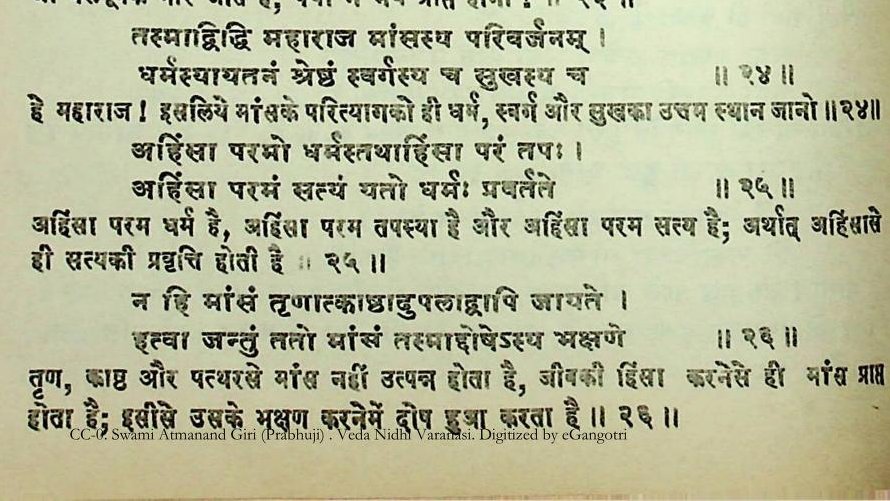 तस्माद्विद्धि महाराज मांसस्य परिवर्जनम् ।
धर्मस्यायतनं श्रेष्ठं स्वर्गस्य च सुखस्य च ॥ २४ ॥
हे महाराज ! इसलिये मांसके परित्यागको ही धर्म, स्वर्ग और सुखका उत्तम स्थान जानो ॥ २४ ॥
अहिंसा परमो धर्मस्तथाहिंसा परं तपः ।
अहिंसा परमं सत्यं यतो धर्मः प्रवर्तते ॥ २५ ॥
अहिंसा परम धर्म है, अहिंसा परम तपस्या है और अहिंसा परम सत्य है; अर्थात् अहिंसासे
ही सत्यकी प्रवृत्ति होती है ॥ २५ ॥
न हि मांसं तृणात्काष्ठादुपलाद्वापि जायते ।
हत्वा जन्तुं ततो मांसं तस्माद्दोषेऽस्य भक्षणे ॥ २६ ॥
तृण, काष्ठ और पत्थरसे मांस नहीं उत्पन्न होता है, जीवकी हिंसा करनेसे ही मांस प्राप्त
होता है; इसीसे उसके भक्षण करनेमें दोष हुआ करता है ॥ २६ ॥
CC-0. Swami Atmanand Giri (Prabhuji) . Veda Nidhi Varanasi. Digitized by eGangotri